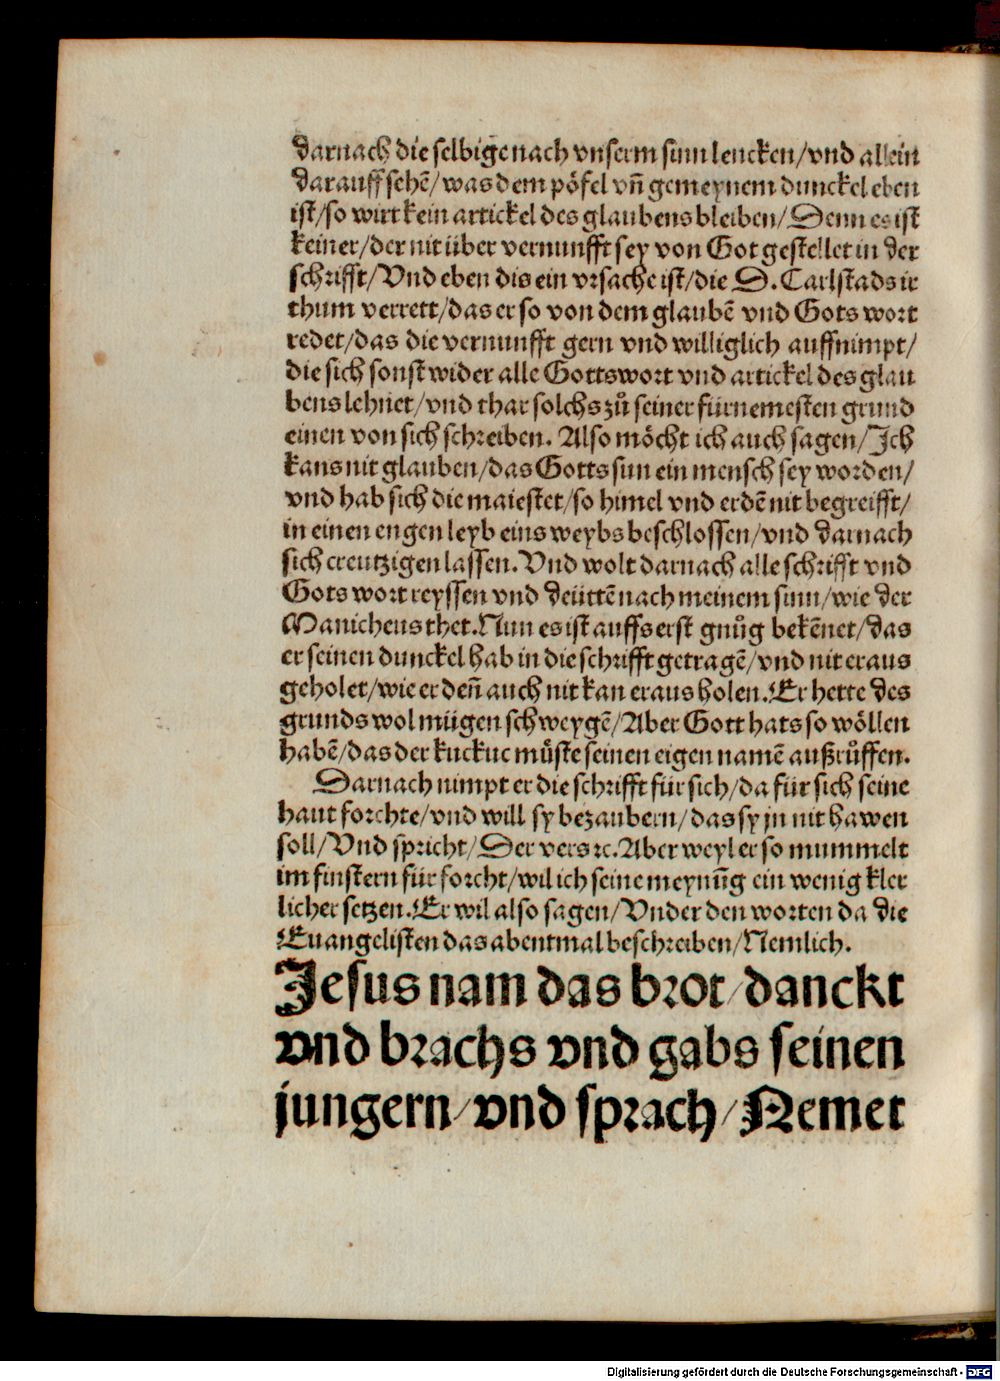 darnach die selbige nach vnserm sinn lencken/vnd allein
darauff sehē/was dem pöfel vn̄ gemeynem dunckel eben
ist/so wirt kein artickel des glaubens bleiben/Denn es ist
keiner/der nit über vernunfft sey von Got gestellet in der
schrifft/Vnd eben dis ein vrsache ist/die D. Carlstads ir
thum verrett/das er so von dem glaubē vnd Gots wort
redet/das die vernunfft gern vnd williglich auffnimpt/
die sich sonst wider alle Gottswort vnd artickel des glau
bens lehnet/vnd thar solchs zů seiner fürnemesten grund
einen von sich schreiben. Also möcht ich auch sagen/Ich
kans nit glauben/das Gotts sun ein mensch sey worden/
vnd hab sich die maiestet/so himel vnd erdē nit begreifft/
in einen engen leyb eins weybs beschlossen/vnd darnach
sich creutzigen lassen. Vnd wolt darnach alle schrifft vnd
Gots wort reyssen vnd deüttē nach meinem sinn/wie der
Manicheus thet. Nun es ist auffs erst gnůg bekēnet/das
er seinen dunckel hab in die schrifft getragē/vnd nit eraus
geholet/wie er den̄ auch nit kan eraus holen. Er hette des
grunds wol mügen schweygē/Aber Gott hats so wöllen
habē/das der kuckuc můste seinen eigen namē außrůffen.
Darnach nimpt er die schrifft für sich/da für sich seine
haut forchte/vnd will sy bezaubern/das sy jn nit hawen
soll/Vnd spricht/Der vers ꝛc. Aber weyl er so mummelt
im finstern für forcht/wil ich seine meynūg ein wenig kler
licher setzen. Er wil also sagen/Vnder den worten da die
Euangelisten das abentmal beschreiben/Nemlich.
Jesus nam das brot/danckt
vnd brachs vnd gabs seinen
jungern/vnd sprach/Nemet
Digitalisierung gefördert durch die Deutsche Forschungsgemeinschaft - DFG